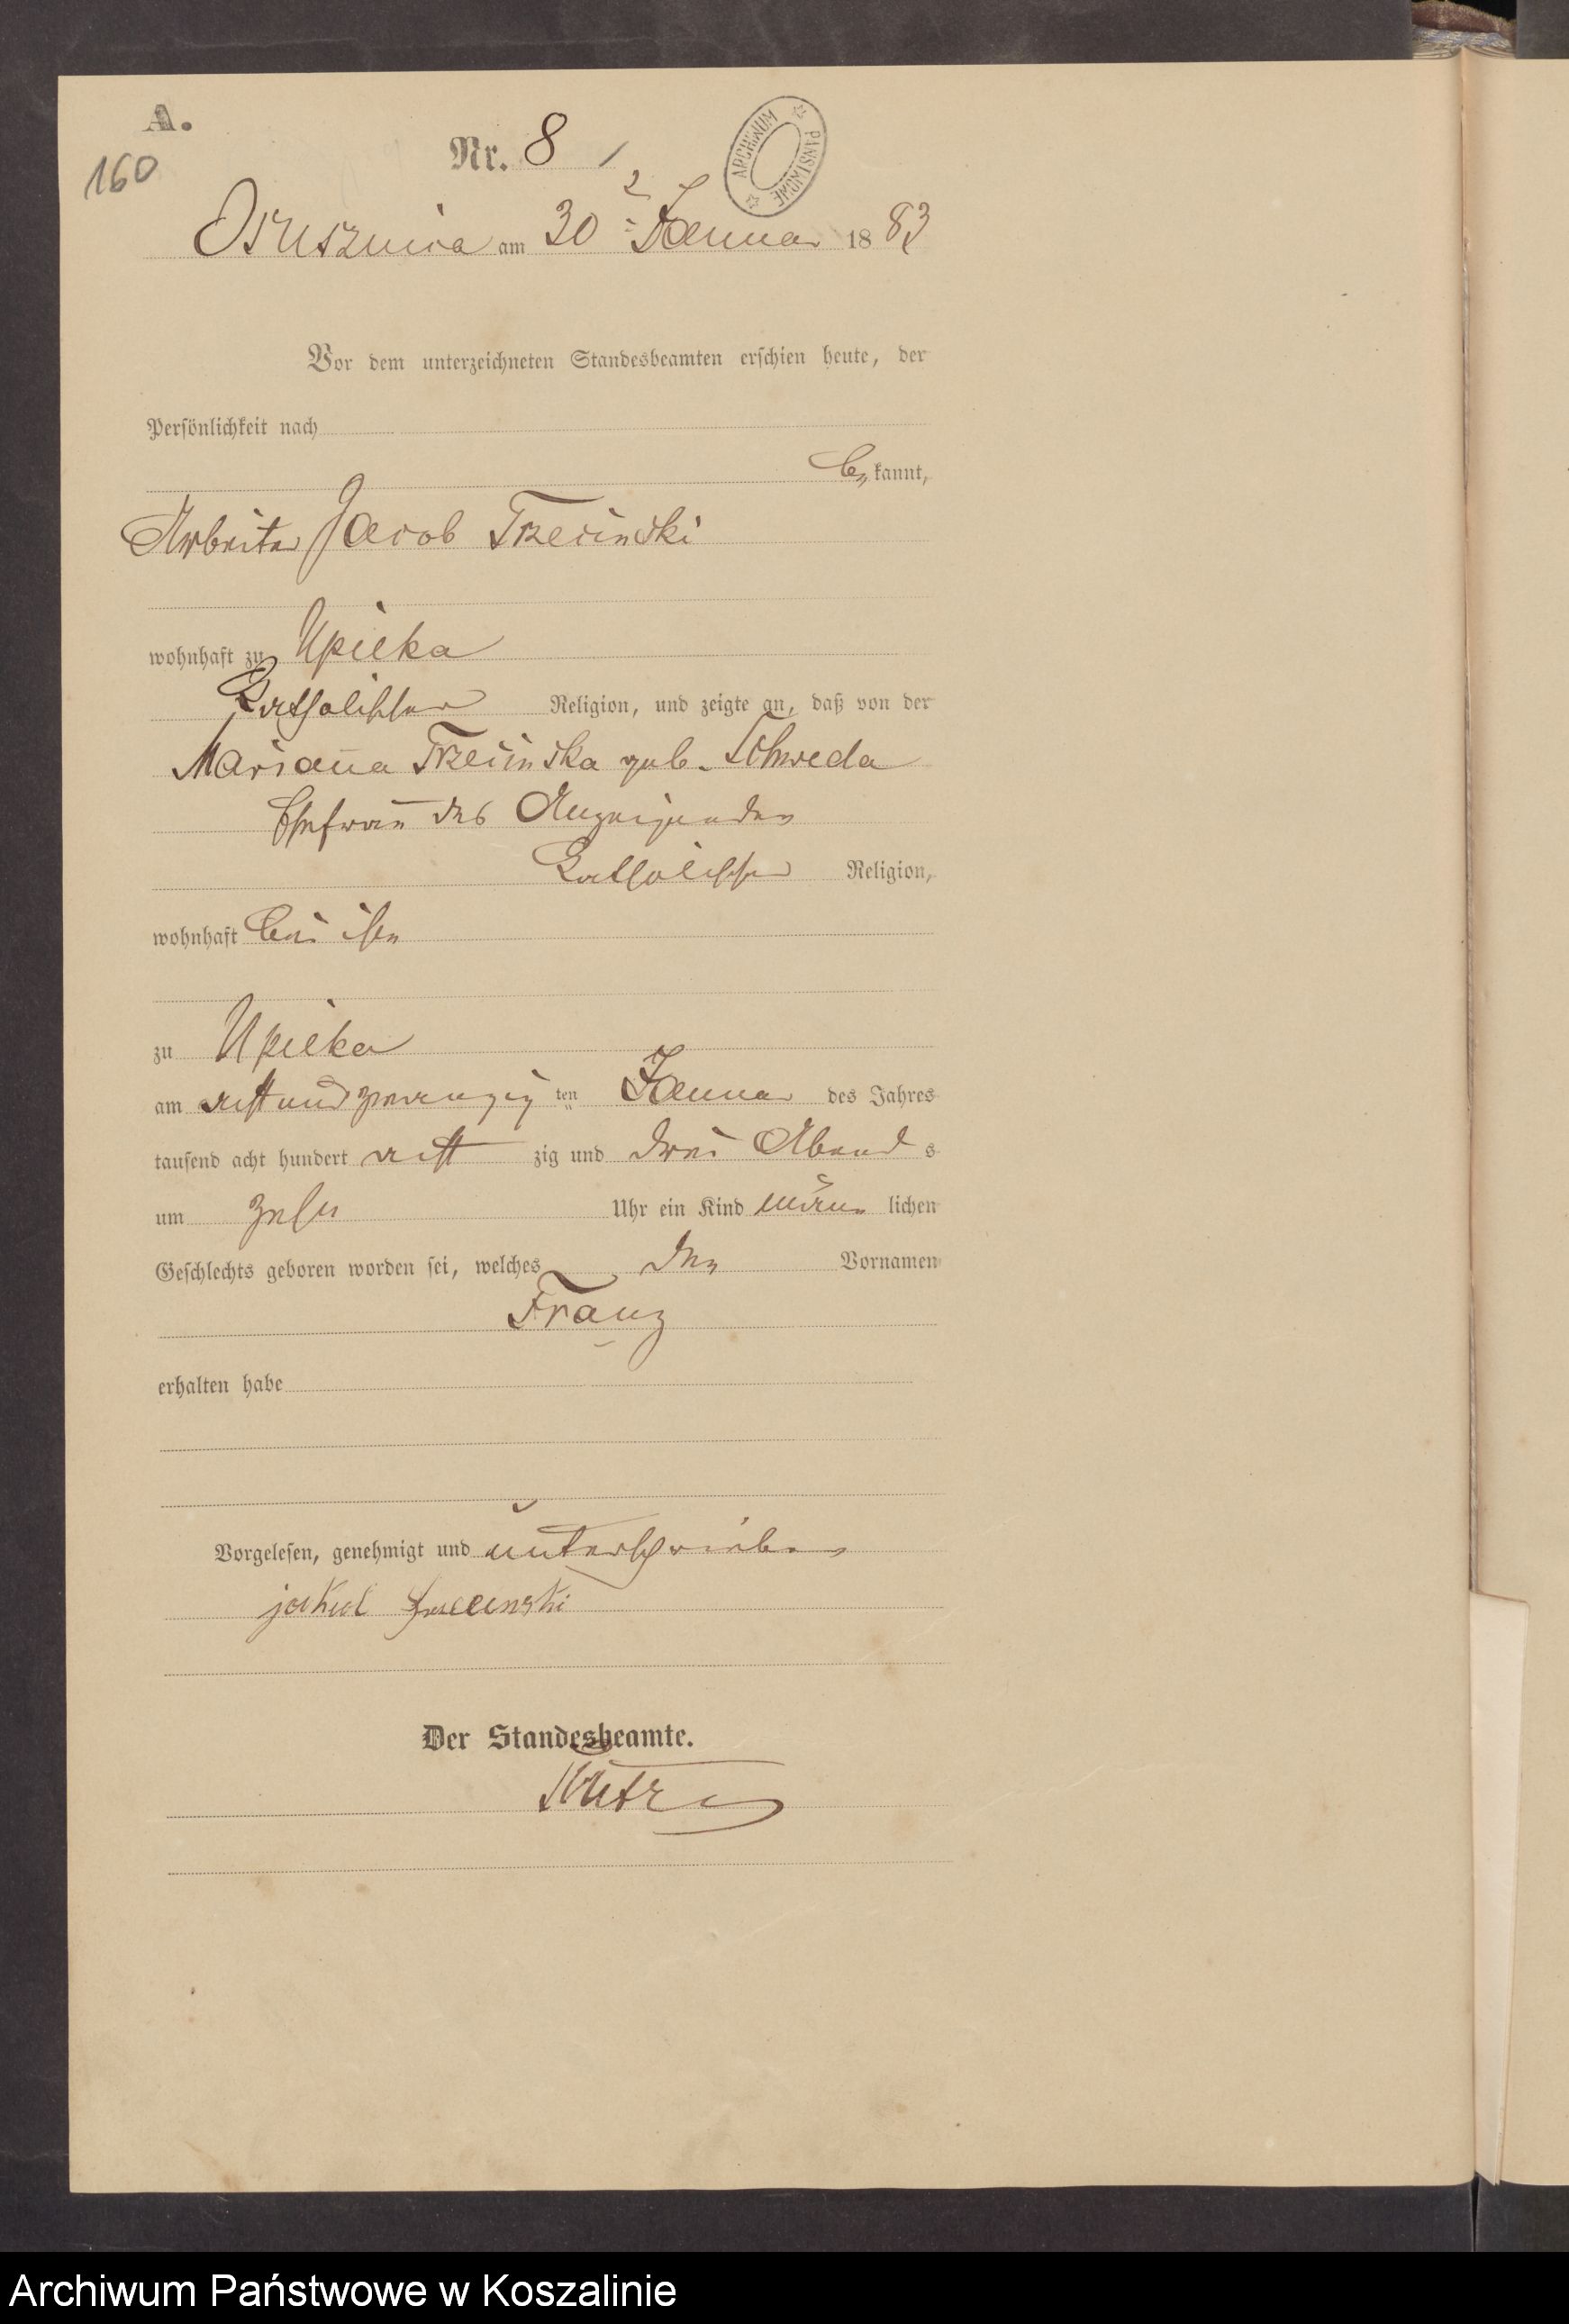 A.
160
Nr. 8
ARCHIWUM PAŃSTWOWE
Osusznica am 30 Januar 1883
Vor dem unterzeichneten Standesbeamten erschien heute, der
Persönlichkeit nach
be kannt,
Arbeiter Jacob Trzecinski
wohnhaft zu Upilka
katholischer Religion, und zeigte an, daß von der
Mariana Trzecinska geb. Schweda
Ehefrau des Anzeigenden
katholischer Religion,
wohnhaft bei ihm
zu Upilka
am achtundzwanzig ten Januar des Jahres
tausend acht hundert acht zig und drei Abends
um zehn Uhr ein Kind männ lichen
Geschlechts geboren worden sei, welches den Vornamen
Franz
erhalten habe
Vorgelesen, genehmigt und unterschrieben
Der Standesbeamte.
Archiwum Państwowe w Koszalinie